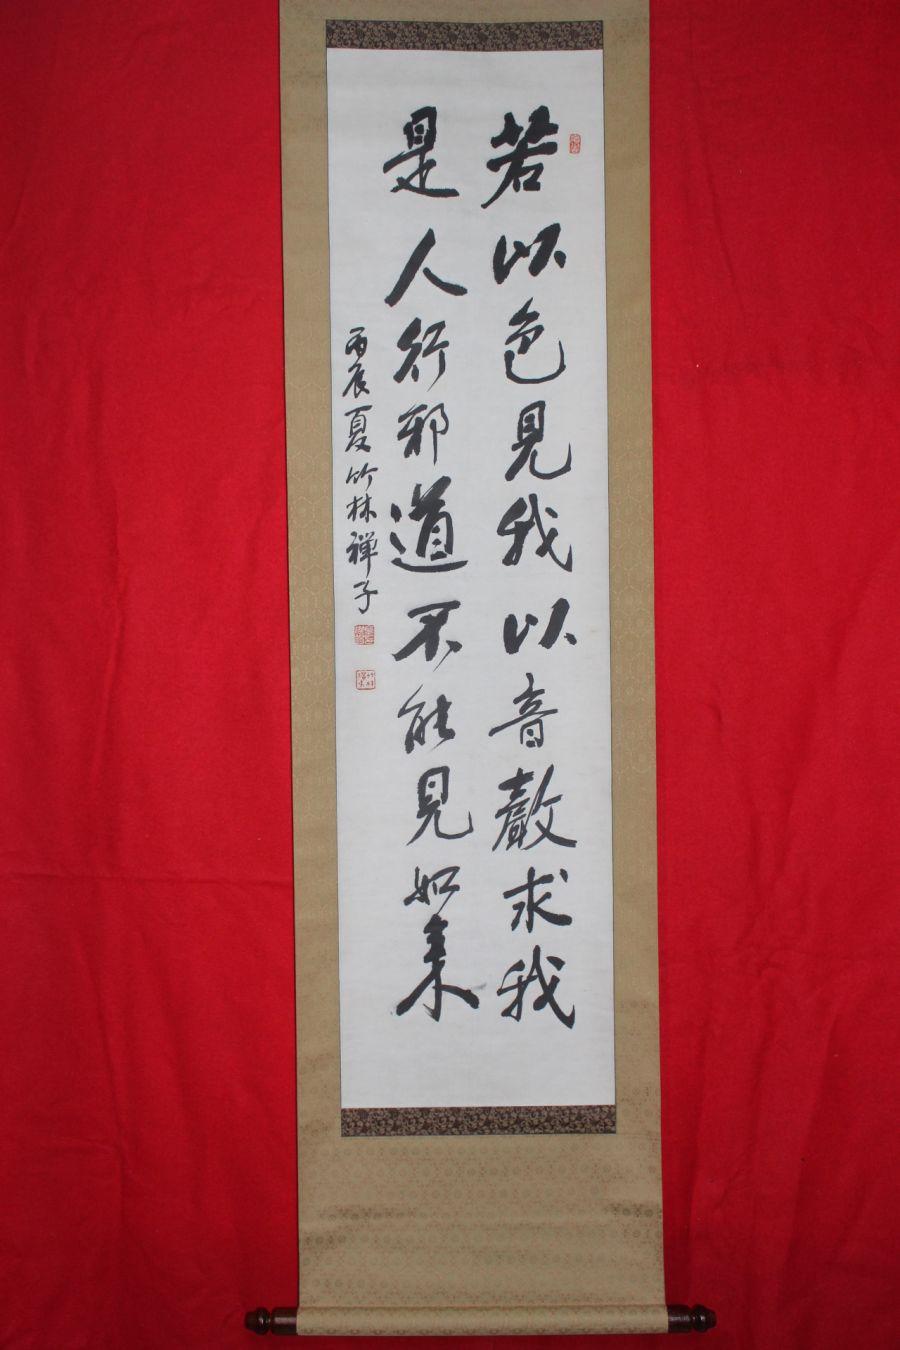 若以色見我以音聲求我
是人行邪道不能見如来
丙辰夏竹林禅子